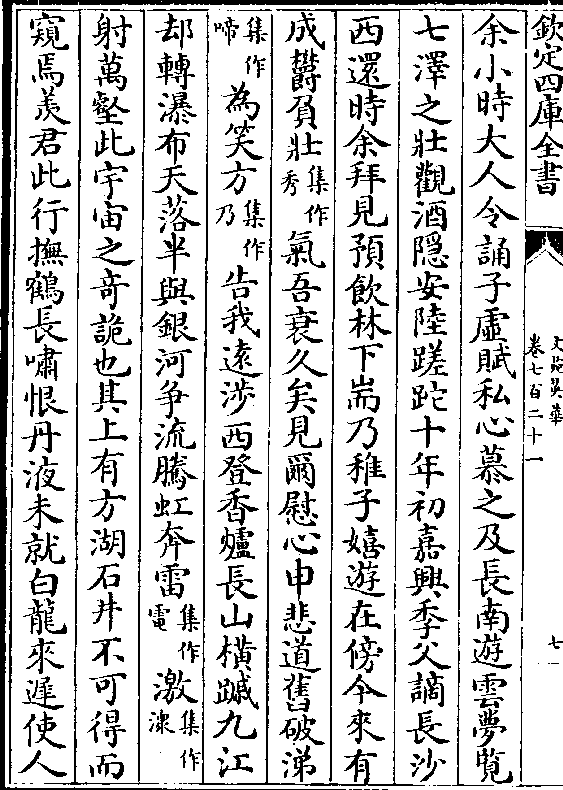 欽定四庫全書
文苑英華
卷七百二十一
七
余小時大人令誦子虛賦私心慕之及長南遊雲夢覧
七澤之壯觀酒隱安陸蹉跎十年初嘉興季父謫長沙
西還時余拜見預飲林下耑乃稚子嬉遊在傍今來有
成欝負壯集作秀氣吾衰久矣見爾慰心申悲道舊破涕
集作啼為笑方集作乃告我逺涉西登香爐長山橫蹴九江
却轉瀑布天落半與銀河爭流騰虹奔雷集作電激集作潨
射萬壑此宇宙之奇詭也其上有方湖石井不可得而
窺焉羨君此行撫鶴長嘯恨丹液未就白龍來遲使人